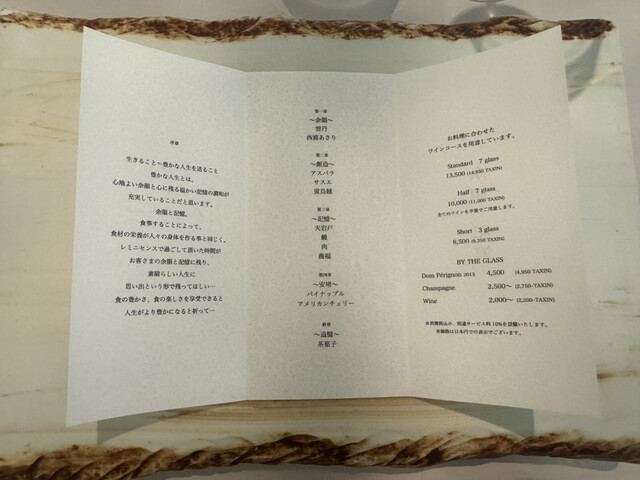 序章
生きること＝豊かな人生を送ること
豊かな人生とは、
心地よい余韻と心に残る温かい記憶の調和が
充実していることだと思います。
余韻と記憶。
食事することによって、
食材の栄養が人々の身体を作る事と同じく、
レミニセンスで過ごして頂いた時間が
お客さまの余韻と記憶に残り、
素晴らしい人生に
思い出という形で残ってほしい…
食の豊かさ、食の楽しさを享受できると
人生がより豊かになると祈って…
第一章
〜余韻〜
雲丹
西浦あさり
第二章
〜創造〜
アスパラ
サスエ
第三章
〜記憶〜
天岩戸
鰻
肉
第四章
〜安堵〜
パイナップル
アメリカンチェリー
終章
〜追憶〜
茶菓子
お料理に合わせた
ワインコースを用意しています。
Standard 7 glass
13,500 (14,850 TAXIN)
Half 7 glass
10,000 (11,000 TAXIN)
全てのワインを半量でご用意します。
Short 3 glass
8,500 (9,350 TAXIN)
BY THE GLASS
Dom Pérignon 2013 4,500 (4,950 TAXIN)
Champagne 2,500〜 (2,750-TAXIN)
Wine 2,000〜 (2,200-TAXIN)
※消費税込み、別途サービス料10%を頂戴いたします。
※価格は日本円での表示でございます。